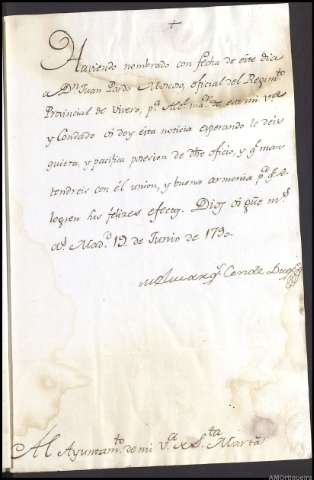 +
Haviendo nombrado con fecha de este dia
a Dn Juan Pardo Moscoso, oficial del Regimto
Provincial de Vivero, pa Alcde maor de esa mi villa
y Condado os doy esta noticia esperando le deis
quieta, y pacifica posesion de dho oficio, y q man
tendreis con él union, y buena armonia pa q se
logren los felizes efectos. Dios os gûe ms
as Madd 19 de Junio de 179
Conde Duq
Al Ayuntamto de mi Va de Sta Marta
AMOrtigueira